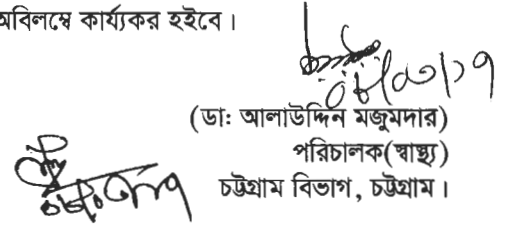 অবিলম্বে কার্য্যকর হইবে।
(ডা: আলাউদ্দিন মজুমদার)
পরিচালক(স্বাস্থ্য)
চট্টগ্রাম বিভাগ, চট্টগ্রাম।